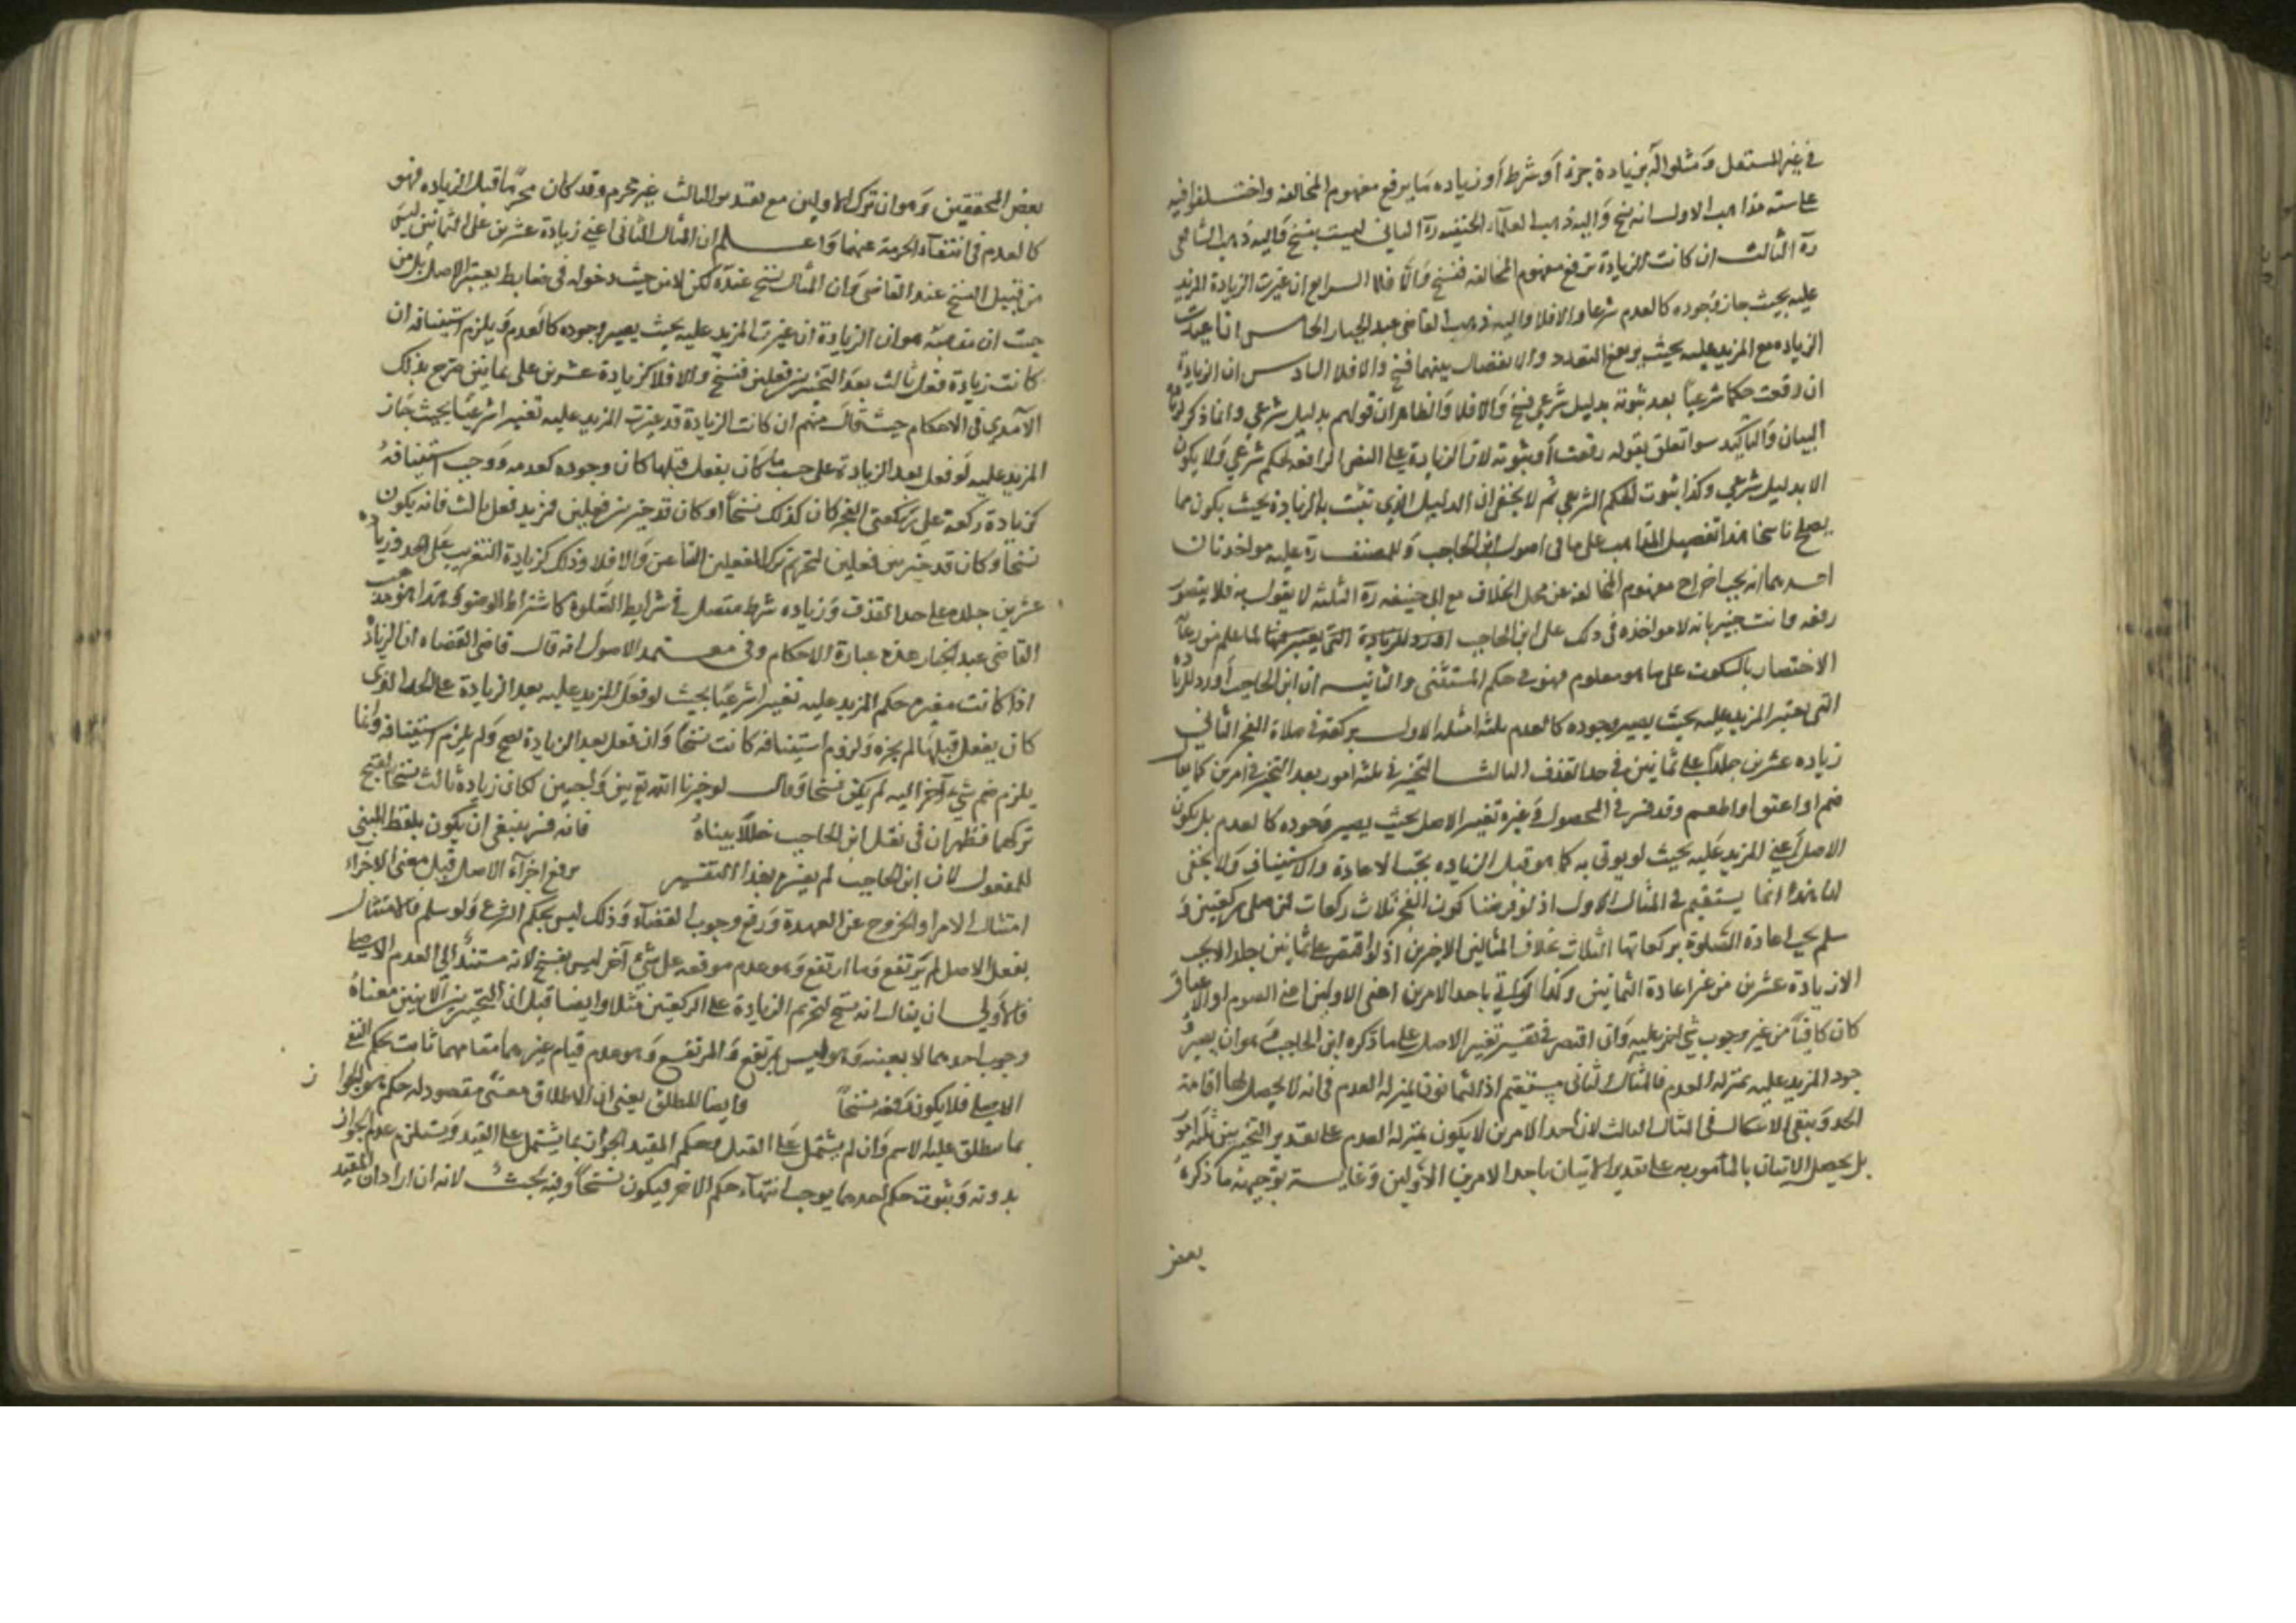 في غير المستقل ومثلوا له بزيادة جزء أو شرط أو زيادة ما يرفع مفهوم المخالفة واختلفوا فيه
على ستة مذاهب الاول انه نسخ واليه ذهب العلماء الحنفية ره الثاني ليست بنسخ واليه ذهب الشافعي
ره الثالث ان كانت الزيادة ترفع مفهوم المخالفة فنسخ والا فلا الرابع ان غيرت الزيادة المزيد
عليه بحيث جاز وجوده كالعدم شرعا والا فلا واليه ذهب القاضي عبد الجبار الخامس ان اتحدت
الزيادة مع المزيد عليه بحيث يرفع التعدد والانفصال بينهما فنسخ والا فلا السادس ان الزيادة
ان رفعت حكما شرعيا بعد ثبوته بدليل شرعي فنسخ والا فلا والظاهر ان قولهم بدليل شرعي وانما ذكر لزيادة
البيان والتأكيد سوا تعلق بقوله رفعت أو بثبوته لان الزيادة على النص الرافعة لحكم شرعي ولا يكون
الا بدليل شرعي وكذا ثبوت الحكم الشرعي ثم لا يخفى ان الدليل الذي تثبت به الزيادة يجب يكون مما
يصلح ناسخا هذا تفصيل المذاهب على ما في اصول ابن الحاجب وللمصنف ره عليه مواخذتان
احديهما انه يجب اخراج مفهوم المخالفة عن محل الخلاف مع ابي حنيفة ره الثلثة لا يقول به فلا يتصور
رفعه وانت خبير بانه لا مواخذه في ذلك على ابن الحاجب اورد للزيادة التي يعتبر مفهما لما علم من رعاية
الاختصار بالسكوت على ما هو معلوم فهو في حكم المستثنى والثانية ان ابن الحاجب أورد للزيادة
التي يعتبر المزيد عليه بحيث يصير وجوده كالعدم ثلثة امثلة الاول بركعة في صلاة الفجر الثاني
زيادة عشرين جلدا على ثمانين في حد القذف الثالث التخيير في ثلثة امور بعد التخيير في امرين كما يقال
صم او اعتق او اطعم وقد فسر في المحصول وغيره تغيير الاصل بحيث يصير وجوده كالعدم بل يكون
الاصل أعني المزيد عليه بحيث لو يوتى به كما هو قبل الزيادة يجب الاعادة والاستيناف ولا يخفى
ان هذا انما يستقيم في المثال الاول اذ لو فرضنا كون الفجر ثلاث ركعات فمن صلى ركعتين و
سلم يجب اعادة الصلوة بركعاتها الثلاث بخلاف المثالين الاخرين اذ لو اقتصر على ثمانين جلدا لا يجب
الا زيادة عشرين من غير اعادة الثمانين وكذا لو اتي باحد الامرين اعني الاولين اعني الصوم او الاعتاق
كان كافيا من غير وجوب شي اخر عليه وان اقتصر في تفسير تغيير الاصل على ما ذكره ابن الحاجب وهو ان يصير و
جود المزيد عليه بمنزلة العدم فالمثال الثاني مستقيم اذ الثمانون بمنزلة العدم في انه لا يحصل بها اقامة
الحد ويبقى الاشكال في المثال الثالث لان أحد الامرين لا يكون بمنزلة العدم على تقدير التخيير بين ثلثة امور
بل يحصل الاتيان بالمأمور به على تقدير الاتيان باحد الامرين الأولين وغاية توجيهه ما ذكره
بعض
بعض المحققين وهو ان ترك الاولين مع تقدير الثالث غير محرم وقد كان محرما قبل الزيادة فهو
كالعدم في انتفاء الحرمة عنهما واعلم ان المثال الثاني اعني زيادة عشرين على الثمانين ليس
من قبيل النسخ عند القاضي وان المثال نسخ عنده لكن لا من حيث دخوله في ضابط يعتبر الاصل بل من
حيث ان مذهبه هو ان الزيادة ان غيرت المزيد عليه بحيث يصير وجوده كالعدم ويلزم استينافه ان
كانت زيادة فعل ثالث بعد التخيير بين فعلين فنسخ والا فلا كزيادة عشرين على ثمانين صرح بذلك
الآمدي في الاحكام حيث قال منهم ان كانت الزيادة قد غيرت المزيد عليه تغييرا شرعيا بحيث جاز
المزيد عليه لو فعل بعد الزيادة على حسب ما كان يفعل قبلها كان وجوده كعدمه ووجب استينافه
كزيادة ركعة على ركعتي الفجر كان كذلك نسخا او كان قد خير بين فعلين فزيد فعل ثالث فانه يكون
نسخا وكان قد خير بين فعلين لتحريم ترك الفعلين السابقين والا فلا وذلك كزيادة التغريب على الحد وزيادة
عشرين جلدة على حد القذف وزيادة شرط متصل في شرايط الصلوة كاشتراط الوضوء هذا هو مذهب
القاضي عبد الجبار هذه عبارة الاحكام وفي معتمد الاصول انه قال قاضي القضاه ان الزيادة
اذا كانت مغيرة حكم المزيد عليه تغييرا شرعيا بحيث لو فعل المزيد عليه بعد الزيادة على الحد الذي
كان يفعل قبلها لم يجزه ولزم استينافه كانت نسخا وان فعل بعد الزيادة صح ولم يلزم استينافه وانما
يلزم ضم شيء آخر اليه لم يكن نسخا وقال لو خيرنا الله تع بين واجبين لكان زيادة ثالث نسخا لقبح
تركهما فظهر ان في نقل ابن الحاجب خللا بيناه فانه فسر ينبغي ان يكون بلفظ المبني
للمفعول لان ابن الحاجب لم يفسر بهذا التفسير يرفع اجزاء الاصل قبل معنى الاجزاء
امتثال الامر او الخروج عن العهدة ورفع وجوب القضاء وذلك ليس بحكم الشرع ولو سلم فالامتثال
بفعل الاصل لم يرتفع وما ارتفع وهو عدم موقفه على شيء آخر ليس بنسخ لانه مستند الى العدم الاصلي
فالاولى ان يقال انه نسخ لتحريم الزيادة على الركعتين مثلا وايضا قبل ان التخيير بين الاثنين معناه
وجوب احدهما لا بعينه وهو ليس بمرتفع والمرتفع وهو عدم قيام غيرهما مقامهما ثابت بحكم النفي
الاصلي فلا يكون رفعه نسخا وايضا المطلق يعني ان الاطلاق معنى مقصود له حكم هو الجواز
بما يطلق عليه الاسم وان لم يشتمل على القيد وحكم المقيد الجواز بما يشتمل على القيد ويستلزم عدم الجواز
بدونه وثبوت حكم احدهما يوجب انتهاء حكم الاخر فيكون نسخا وفيه بحث لانه ان اراد ان المقيد